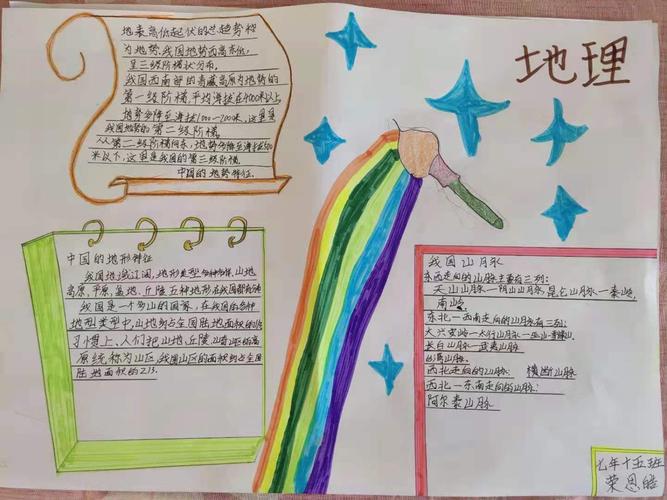 地理
地表高低起伏的总趋势称
为地势,我国地势西高东低,
呈三级阶梯状分布。
我国西南部的青藏高原为地势的
第一级阶梯,平均海拔在4000米以上
地势多降至海拔1000—2000米,这里是
我国地势的第二级阶梯。
从第二级阶梯向东,地势多降至海拔500
米以下,这里是我国的第三级阶梯。
中国的地势特征.
中国的地形特征
我国地域辽阔,地形类型多种多样,山地
高原、平原、盆地、丘陵五种地形在我国都有分布
我国是一个多山的国家,在我国的各种
地型类型中,山地约占全国陆地面积的
习惯上,人们把山地、丘陵
原统称为山区,我国山区的面积约占全国
陆地面积的2/3.
我国山脉
东西走向的山脉主要有三列:
天山山脉—阴山山脉,昆仑山脉—秦岭,
南岭,
东北—西南走向的山脉有三列:
大兴安岭—太行山脉—巫山—雪峰山
长白山脉—武夷山脉
台湾山脉
西北走向的山脉: 横断山脉
西北—东南走向的山脉:
阿尔泰山脉
七年十五班
荣恩皓